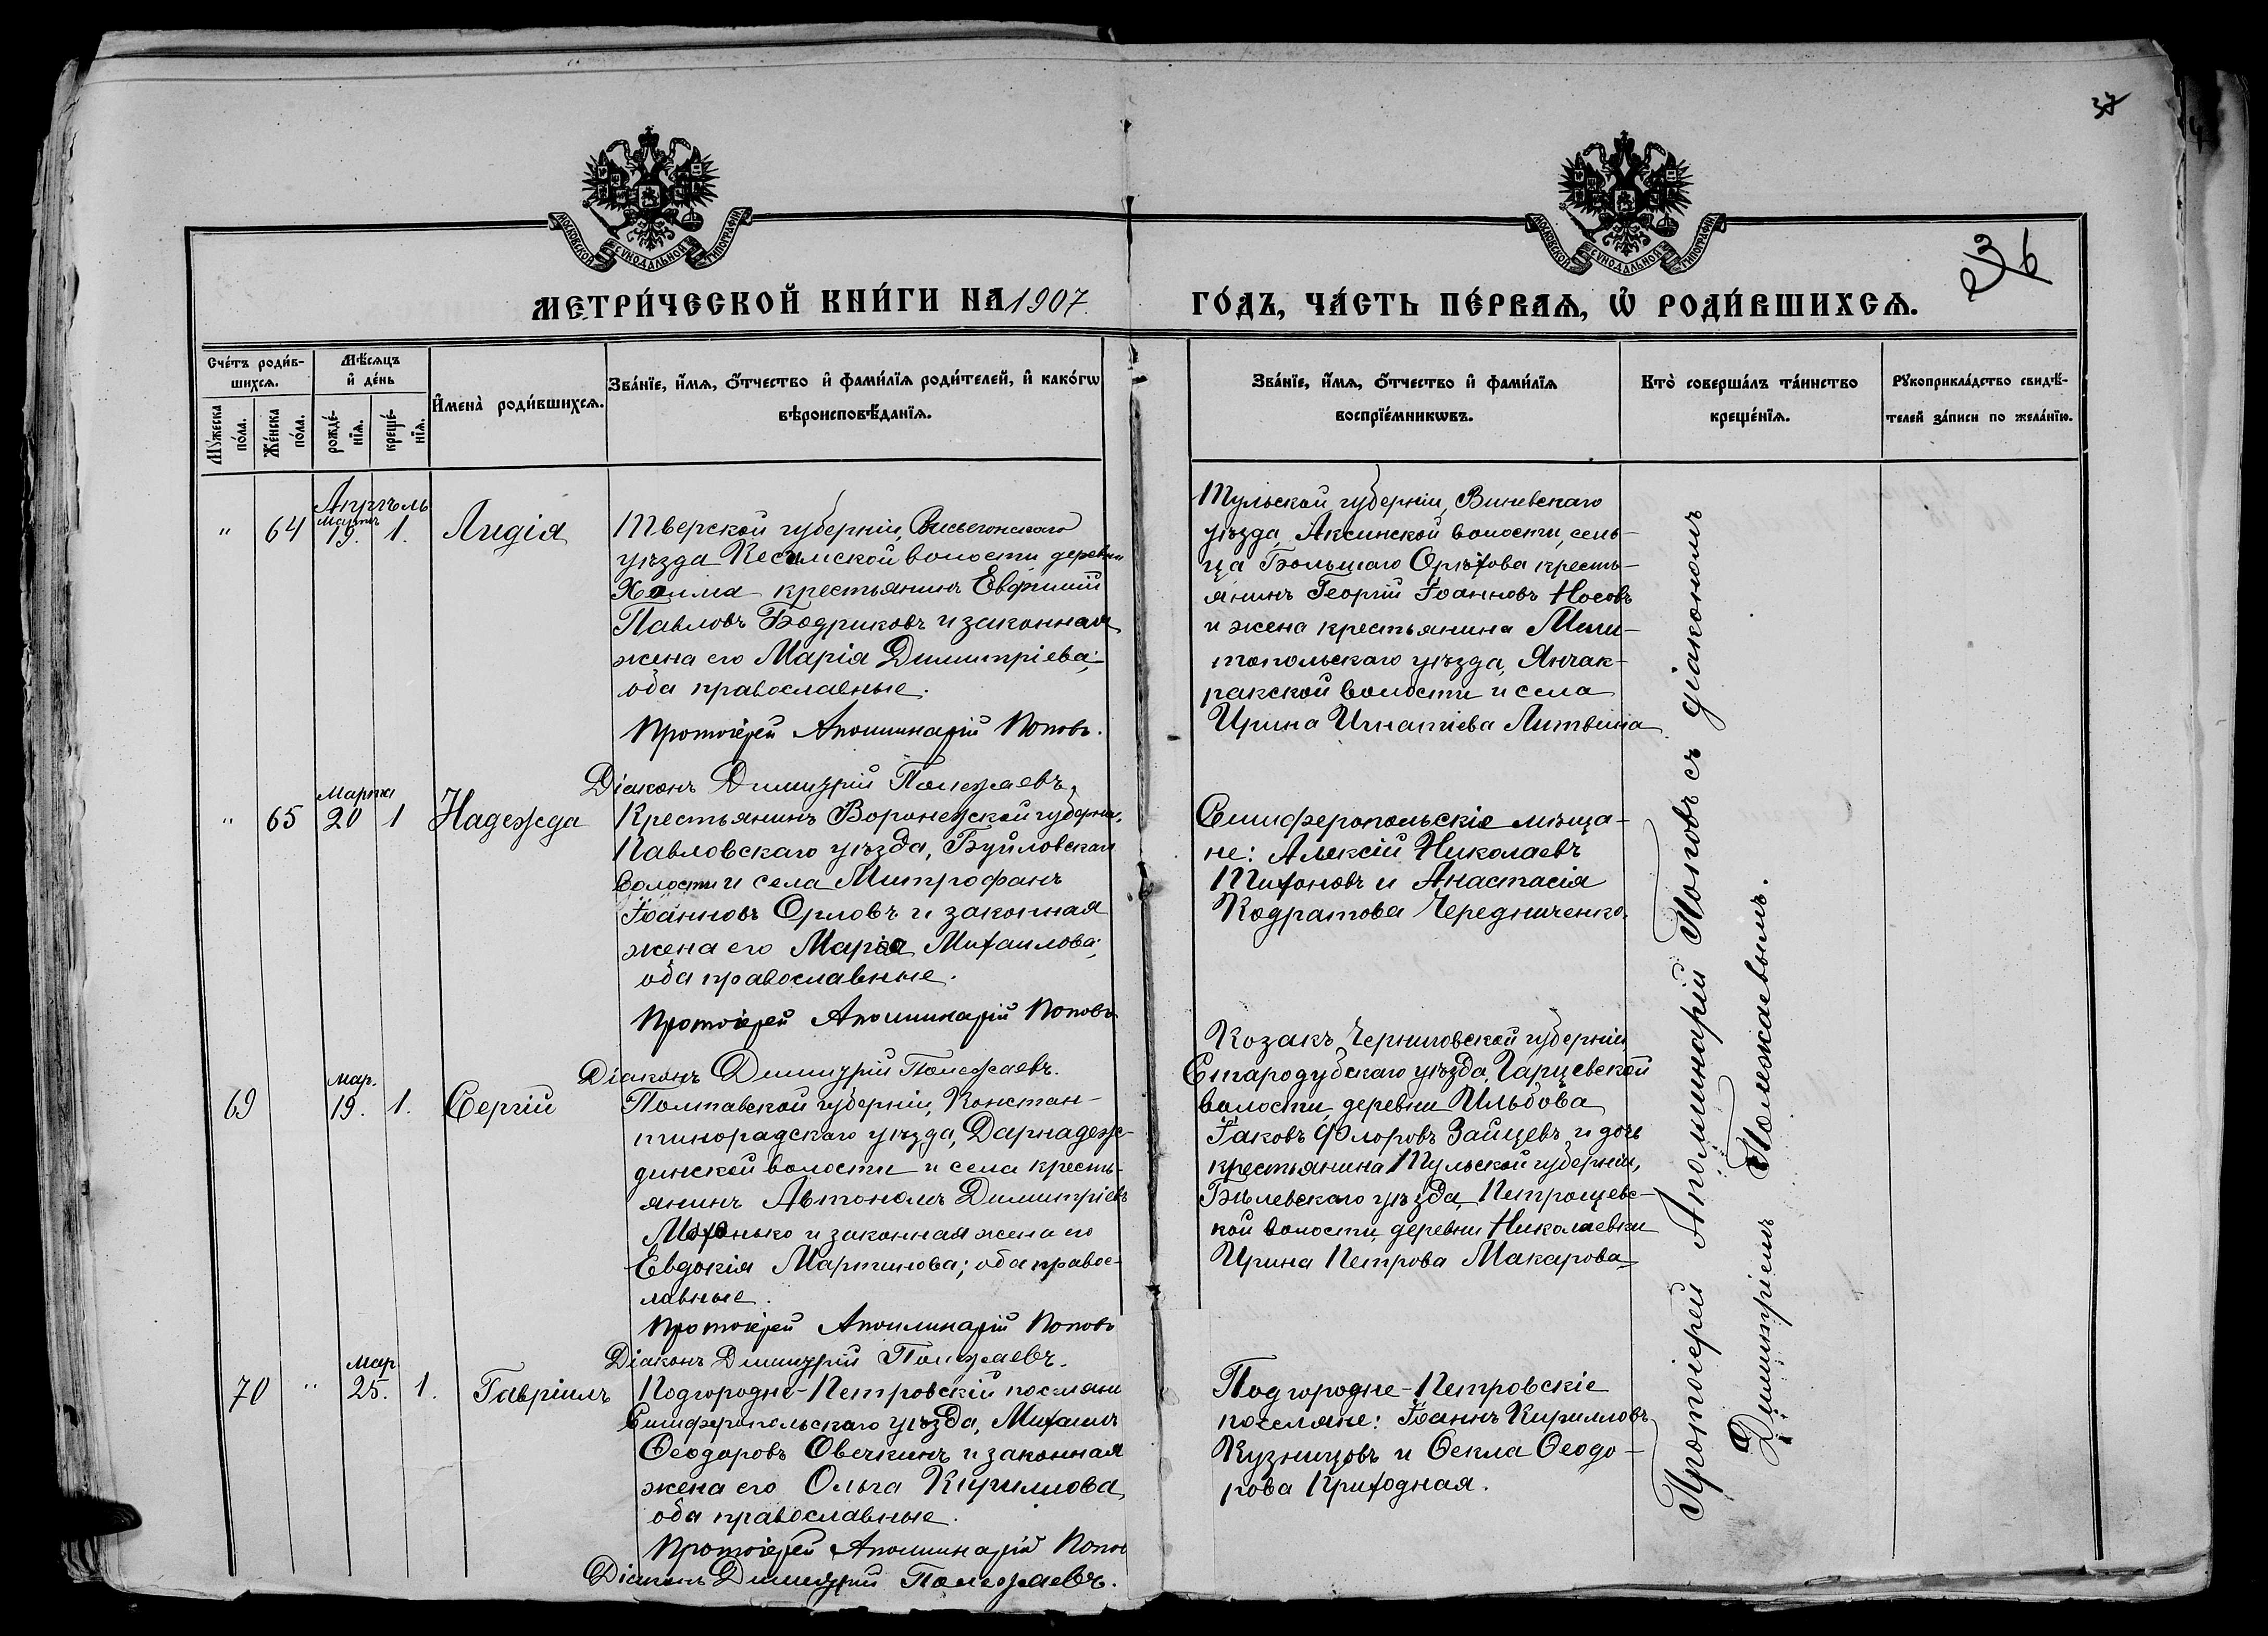 37
МОСКОВСКОЙ СѴНОДАЛЬНОЙ ТИПОГРАФІИ
МОСКОВСКОЙ СѴНОДАЛЬНОЙ ТИПОГРАФІИ
36
МЕТРИ́ЧЕСКОЙ КНИ́ГИ НА 1907.
ГО́ДЪ, ЧА́СТЬ ПЕ́РВАѦ, Ѡ҆ РОДИ́ВШИХСѦ.
Сче́тъ роди́в-
шихсѧ.
Му́жеска
по́ла.
Же́нска
по́ла.
Мѣ́сѧцъ
и҆ де́нь
рожде́-
нїѧ.
креще́-
нїѧ.
И҆мена̀ роди́вшихсѧ.
Зва́нїе, и҆́мѧ, ѻ҆́тчество и҆ фами́лїѧ роди́телей, и҆ како́гѡ
вѣроисповѣ́данїѧ.
Зва́нїе, и҆́мѧ, ѻ҆́тчество и҆ фами́лїѧ
воспрїе́мникѡвъ.
Кто̀ соверша́лъ та́инство
креще́нїѧ.
Рꙋкоприкла́дство свидѣ́-
телей за́писи по жела́нїю.
Апрѣль
" 64 Мартъ 19. 1. Лидія
Тверской губерніи, Весьегонскаго
уѣзда Кесемской волости деревни
Холма крестьянинъ Евфимій
Павловъ Бодриковъ и законная
жена его Марія Димитріева;
оба православные.
Протоіерей Аполлинарій Поповъ.
Діаконъ Димитрій Полежаевъ.
Тульской губерніи, Веневскаго
уѣзда, Аксинской волости, сель-
ца Большаго Орѣхова кресть-
янинъ Георгій Іоанновъ Носовъ
и жена крестьянина Мели-
топольскаго уѣзда, Янчак-
ракской волости и села
Ирина Игнатіева Литвина.
" 65 Марта 20 1 Надежда
Крестьянинъ Воронежской губерніи,
Павловскаго уѣзда, Буйловской
волости и села Митрофанъ
Іоанновъ Орловъ и законная
жена его Марія Михаилова;
оба православные.
Протоіерей Аполлинарій Поповъ
Діаконъ Димитрій Полежаевъ.
Симферопольскіе мѣща-
не: Алексій Николаевъ
Тихоновъ и Анастасія
Кодратова Чередниченко.
69 Мар. 19. 1. Сергій
Полтавской губерніи, Констан-
тиноградскаго уѣзда, Дарнадеж-
динской волости и села кресть-
янинъ Автономъ Димитріевъ
Мохонько и законная жена его
Евдокія Мартинова; оба правос-
лавные.
Протоіерей Аполлинарій Поповъ
Діаконъ Димитрій Полежаевъ.
Козакъ Черниговской губерніи,
Стародубскаго уѣзда, Гарцевской
волости, деревни Ильбова
Іаковъ Флоровъ Зайцевъ и дочь
крестьянина Тульской губерніи,
Бѣлевскаго уѣзда, Петрищевс-
кой волости, деревни Николаевки
Ирина Петрова Макарова.
70 " Мар. 25. 1. Гавріилъ
Подгородне-Петровскій поселянинъ
Симферопольскаго уѣзда, Михаилъ
Ѳеодоровъ Овечкинъ и законная
жена его Ольга Кириллова
оба православные.
Протоіерей Аполлинарій Поповъ
Діаконъ Димитрій Полежаевъ.
Подгородне-Петровскіе
поселяне: Іоаннъ Кирилловъ
Кузнецовъ и Ѳекла Ѳеодо-
рова Приходная.
Протоіерей Аполлинарій Поповъ съ діакономъ
Димитріемъ Полежаевымъ.